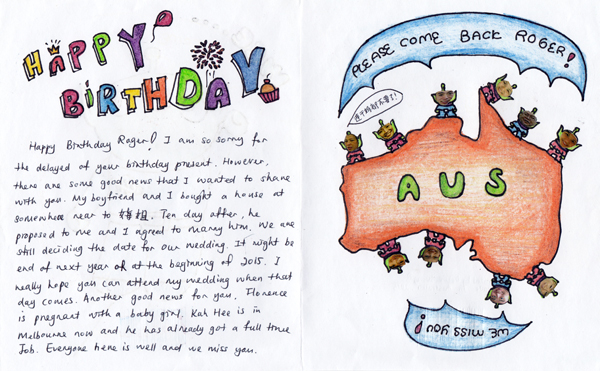 HAPPY
BIRTHDAY
Happy Birthday Roger! I am so sorry for
the delayed of your birthday present. However,
there are some good news that I wanted to share
with you. My boyfriend and I bought a house at
somewhere near to Ten day after, he
proposed to me and I agreed to marry him. We are
still deciding the date for our wedding. It might be
end of next year or at the beginning of 2015. I
really hope you can attend my wedding when that
day comes. Another good news for you, Florence
is pregnant with a baby girl. Kah Hee is in
Melbourne now and he has already got a full time
Job. Everyone here is well and we miss you.
PLEASE COME BACK ROGER!
AUS
WE MISS YOU!